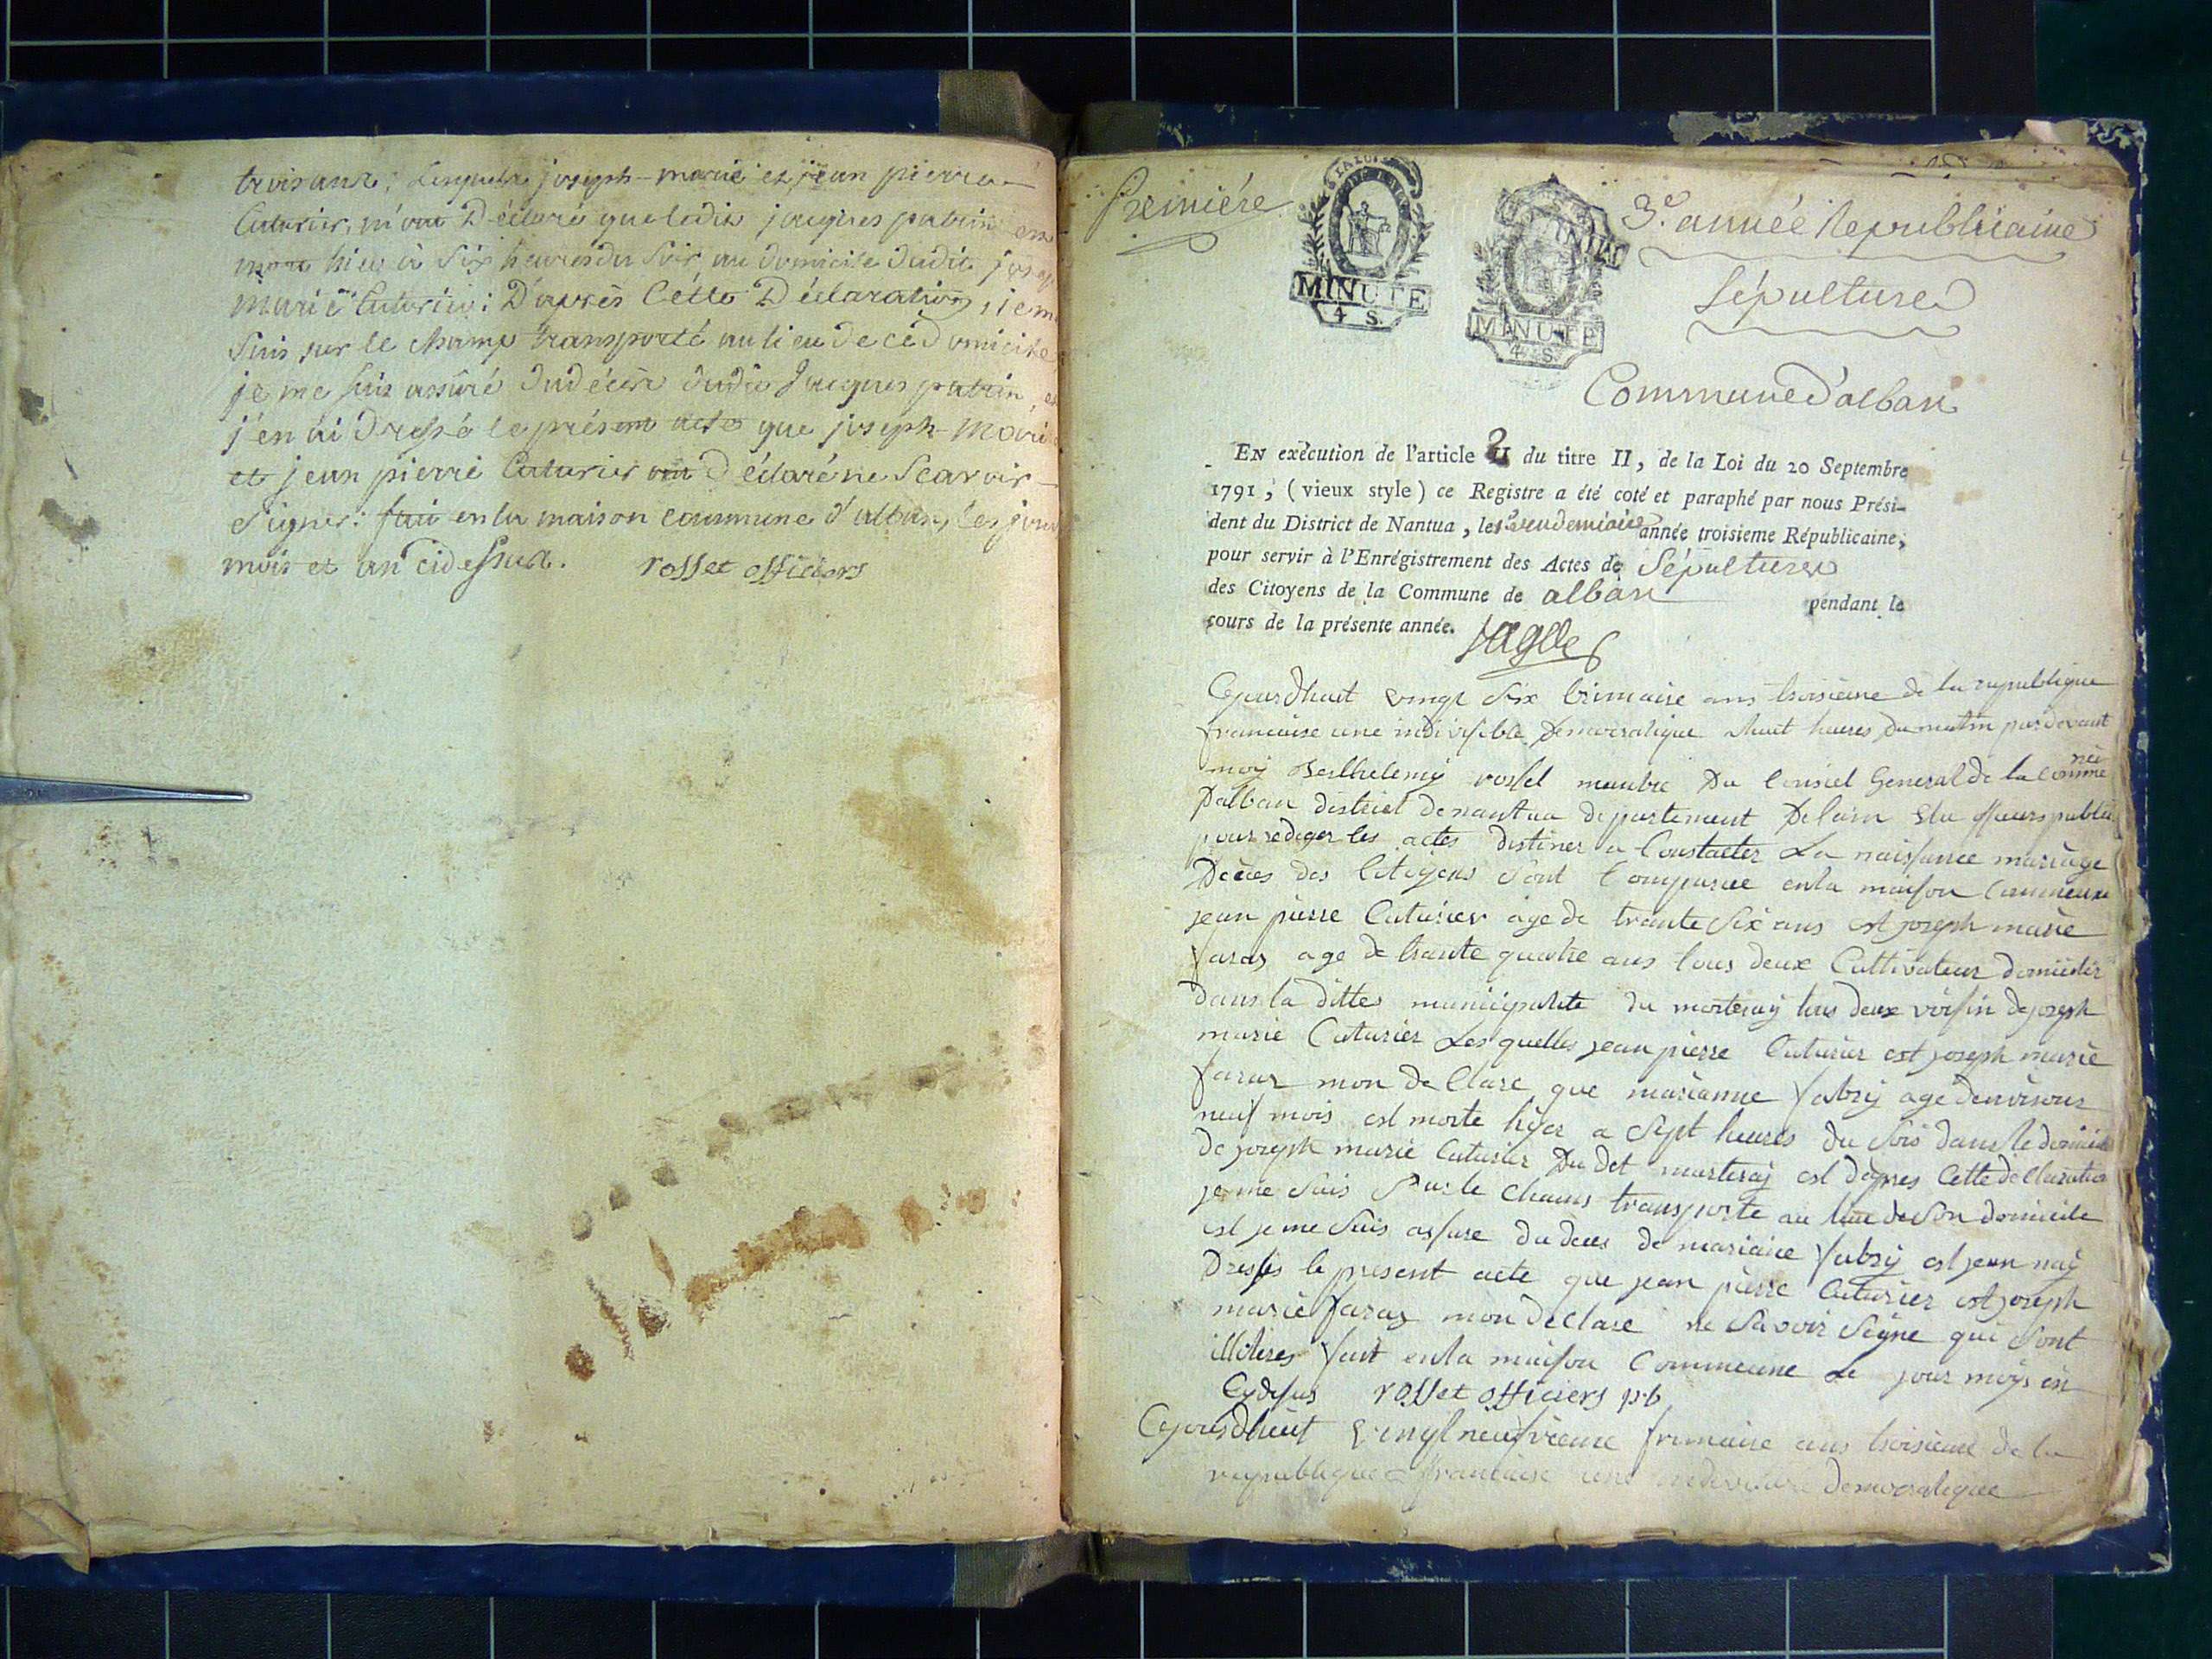 trois ans; Lesquels joseph-marie et jean pierre
Cuturier, m'ont Déclaré que ledit jacques patrin est
mort hier à Six heures du Soir, au domicile dudit
marie Cuturier: D'après Cette Déclaration, je me
suis sur le champ transporté au lieu de ce domicile
je me suis assûré du décès dudit Jacques patrin, et
j'en ai dressé le présent acte que joseph-Marie
et jean pierre Cuturier ont Déclaré ne Scavoir
Signer: fait en la maison commune d'alban, les jour
mois et an cidessus. rosset officiers
Premiére
MINUTE
4 S.
MINUTE
4 S.
3e. année Republicaine
Sépultures
Commune d'alban
EN exécution de l'article 2 du titre II, de la Loi du 20 Septembre
1791, (vieux style) ce Registre a été coté et paraphé par nous Prési-
dent du District de Nantua, le vendemiaire année troisieme Républicaine,
pour servir à l'Enrégistrement des Actes de Sépultures
des Citoyens de la Commune de alban pendant le
cours de la présente année.
Cejourdhuit vingt Six brimaire ans troisieme de la republique
francaise une indivisible Democratique a huit heures du matin pardevant
moy Berthelemy rossel manbre Du Consiel General de la Comme
Dalban district de nantua departement Delain Elu
pour rediger les actes distiner a Constaeter La naissance mariage
Déces des Citoyens Sont Comparue enla maison Commeune
jean pierre Cuturier age de trante Six ans est joseph marie
faraz age de trante quatre ans tous deux Cultivateur domicilie
dans la ditte municipalite du morteray tous deux voisin de joseph
marie Cuturier Les quelles jean pierre Cuturier est joseph marie
faraz mon de Clare que marianne fabry age denviron
neuf mois est morte hyer a Sept heures du Soir dans le domicile
de joseph marie Cuturier Du det morteray est dapres Cette de Claration
je me Suis Sur le Chams transporte au lieu de Son domicile
est je me Suis assure du deces de mariaine fabry est jean naÿ
Dresses le present acte que jean pierre Cuturier est joseph
marie faraz mon de Clare ne Savoir Signe qui Sont
illitires fait enla maison Commeune Le jour moys en
Cydesus rosset officiers pb
Cejourdhieut vingt neufvieme frimaire ans troisieme de la
republique francaise une indivisible democratique